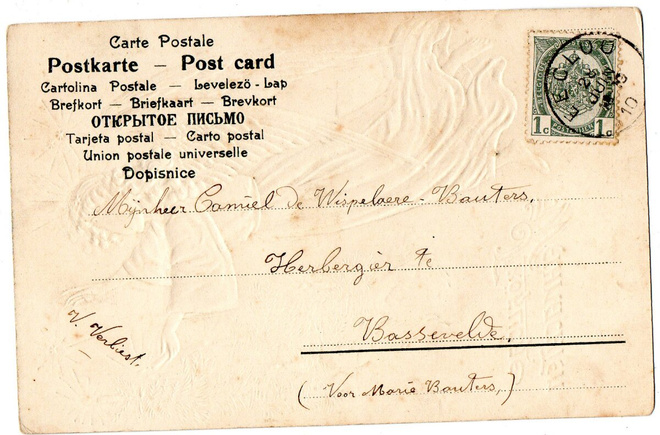 Carte Postale
Postkarte — Post card
Cartolina Postale — Levelezö - Lap
Brefkort — Briefkaart — Brevkort
ОТКРЫТОЕ ПИСЬМО
Tarjeta postal — Carto postal
Union postale universelle
Dopisnice
EECLOO
10
1c 1c
Mijnheer Camiel de Wispelaere-Bauters,
Herbergier te
Bassevelde,
V. Verliest.
(Voor Marie Bauters,)